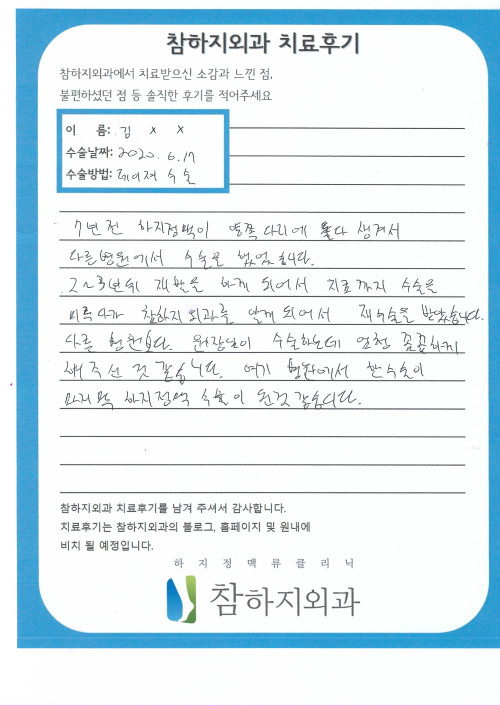 참하지외과 치료후기
참하지외과에서 치료받으신 소감과 느낀 점,
불편하셨던 점 등 솔직한 후기를 적어주세요
이 름: 김 x x
수술날짜: 2020. 6. 17
수술방법: 레이저 수술
7년전 하지정맥이 양쪽 다리에 다 생겨서
다른병원에서 수술을 했었습니다.
2~3년뒤 재발을 하게 되어서 치료까지 수술을
미루다가 참하지외과를 알게 되어서 재수술을 받았습니다.
다른 병원보다 원장님이 수술하는데 엄청 꼼꼼하게
해주신 것 같습니다. 여기 병원에서 한 수술이
마지막 하지정맥 수술이 된것 같습니다.
참하지외과 치료후기를 남겨 주셔서 감사합니다.
치료후기는 참하지외과의 블로그, 홈페이지 및 원내에
비치 될 예정입니다.
하지정맥류클리닉
참하지외과